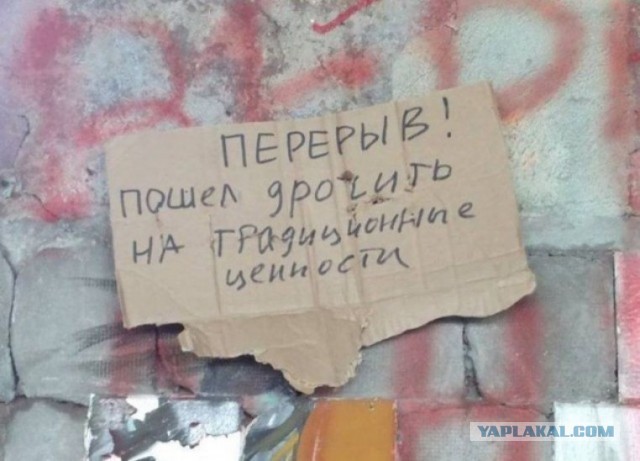 ПЕРЕРЫВ!
пошел дрочить
на традиционные
ценности
YAPLAKAL.COM